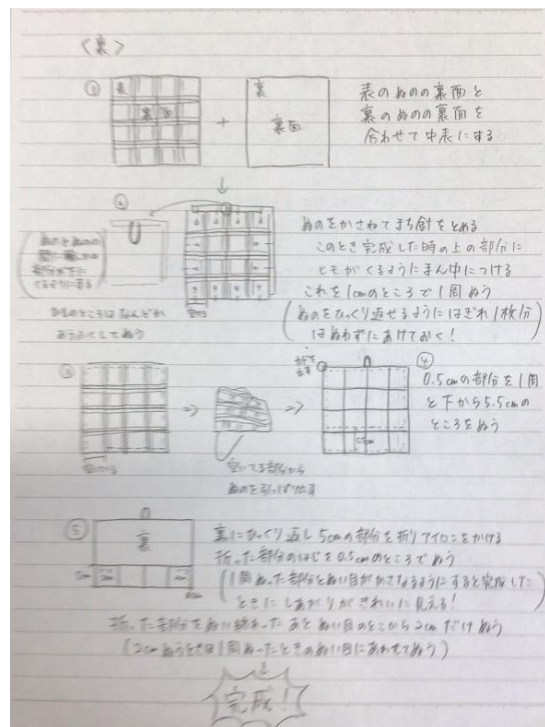 〈裏〉
① 表 裏面 + 裏 裏面
表のぬのの裏面と
裏のぬのの裏面を
合わせて中表にする
②
ぬのとぬのの
間に
部分が下に
くるようにする
ひものところはなんどか
おうふくしてぬう
ぬのをかさねてまち針をとめる
このとき完成した時の上の部分に
ヒモがくるようにまん中につける
これを1cmのところで1周ぬう
(ぬのをひっくり返せるようにはぎれ1枚分
はぬわずにあけておく!)
③
空いてる部分から
ぬのを引っぱり出す
④
0.5cmの部分を1周
と下から5.5cmの
ところをぬう
⑤ 裏
裏にひっくり返し5cmの部分を折りアイロンをかける
折った部分のはじを0.5cmのところでぬう
(1周ぬった部分とぬい目がかさなるようにすると完成した
ときにしあがりがきれいに見える!)
折った部分をぬい終わったあとぬい目のとこから2cmだけぬう
(2cmぬうときは1周ぬったときのぬい目にあわせてぬう)
完成!